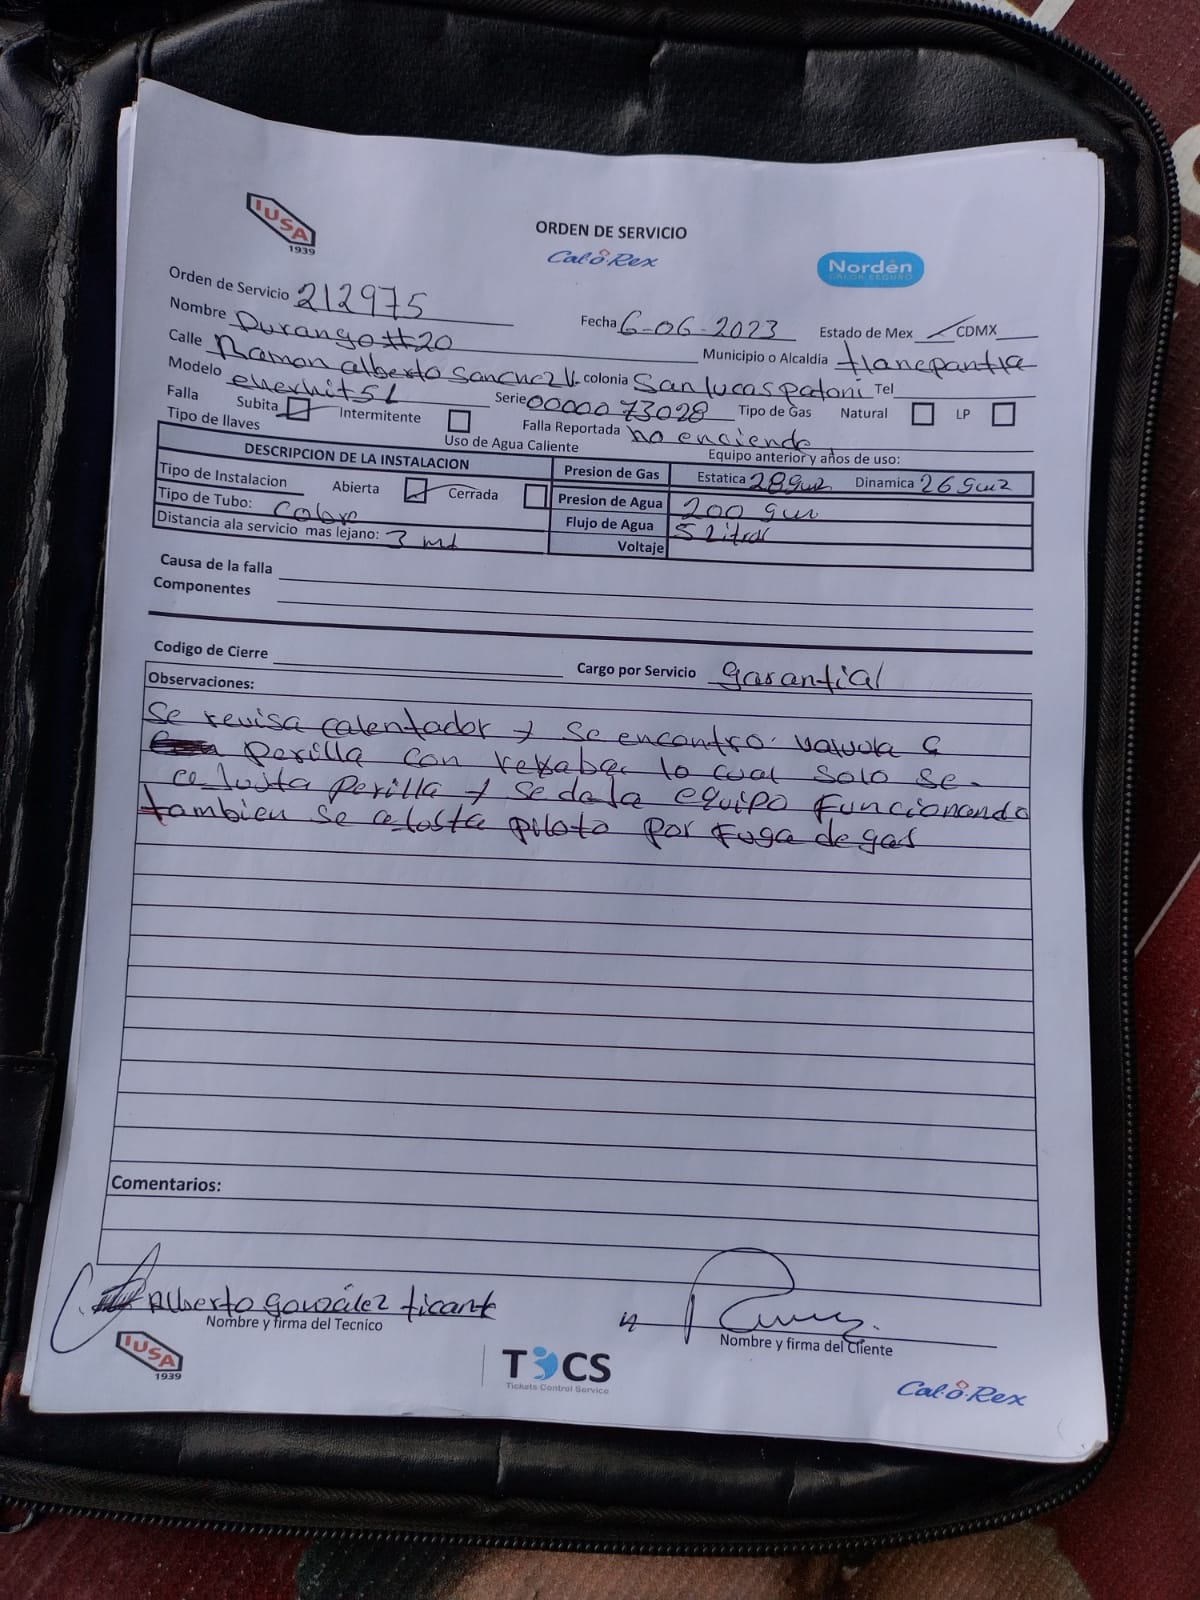 IUSA
1939
ORDEN DE SERVICIO
Cal-o-Rex
Nordên
Orden de Servicio 212975
Fecha 6-06-2023 Estado de Mex CDMX
Nombre Durango #20
Calle Ramon alberto Sanchez V. Municipio o Alcaldia tlanepantla
colonia San lucas patoni Tel
Modelo 5L Serie 0000073028 Tipo de Gas Natural LP
Falla Subita Intermitente Falla Reportada no enciende
Tipo de llaves Uso de Agua Caliente Equipo anterior y años de uso:
DESCRIPCION DE LA INSTALACION Presion de Gas Estatica 28 Dinamica 26
Tipo de Instalacion Abierta Cerrada Presion de Agua 200
Tipo de Tubo: Cobre Flujo de Agua 5 Litros
Distancia ala servicio mas lejano: 3 Voltaje
Causa de la falla
Componentes
Codigo de Cierre Cargo por Servicio garantial
Observaciones:
Se revisa calentador y se encontro
perilla con lo cual solo se
perilla y se equipo funcionando
tambien se piloto por fuga de gas
Comentarios:
Alberto gonzález ticante
Nombre y firma del Tecnico
Nombre y firma del Cliente
IUSA
1939
TCS
Tickets Control Service
Cal-o-Rex